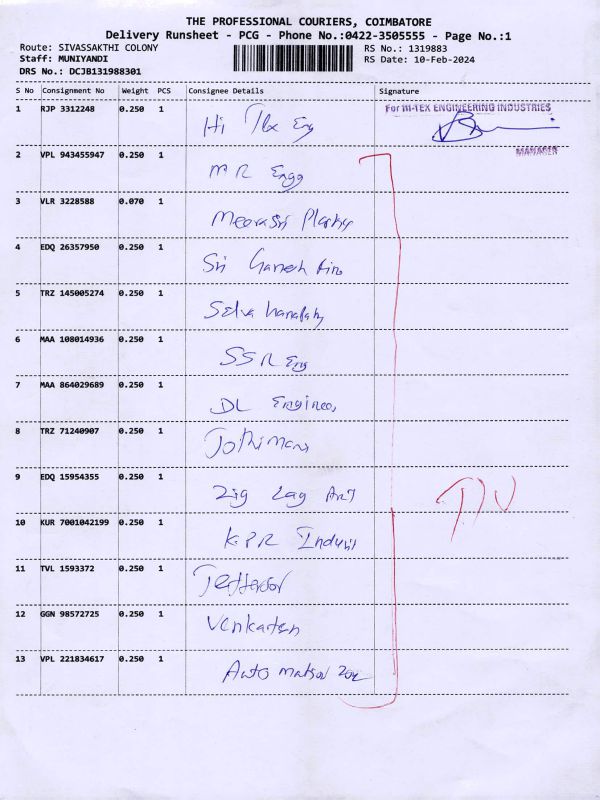 THE PROFESSIONAL COURIERS, COIMBATORE
Delivery Runsheet - PCG - Phone No.:0422-3505555 - Page No.:1
Route: SIVASSAKTHI COLONY RS No.: 1319883
Staff: MUNIYANDI RS Date: 10-Feb-2024
DRS No.: DCJB131988301
S No Consignment No Weight PCS Consignee Details Signature
1 RJP 3312248 0.250 1 Hi Tex Eng
For HI-TEX ENGINEERING INDUSTRIES
MANAGER
2 VPL 943455947 0.250 1 M R Engg
3 VLR 3228588 0.070 1 Meerasri
4 EDQ 26357950 0.250 1 Sri Ganesh
5 TRZ 145005274 0.250 1 Selva
6 MAA 108014936 0.250 1 SSR Eng
7 MAA 864029689 0.250 1 DL Engineer
8 TRZ 71240907 0.250 1 Jothimani
9 EDQ 15954355 0.250 1 Zig Zag
10 KUR 7001042199 0.250 1 K.P.R
11 TVL 1593372 0.250 1
12 GGN 98572725 0.250 1 Venkatesh
13 VPL 221834617 0.250 1 Auto